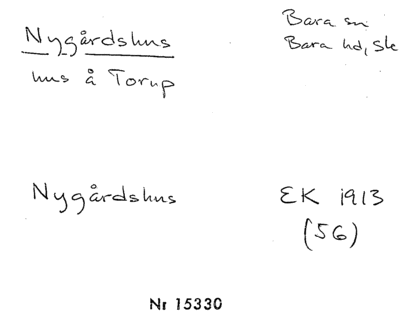 Nygårdshus
Bara sn
Bara hd, Sk
hus å Torup
Nygårdshus
EK 1913
(56)
Nr 15330